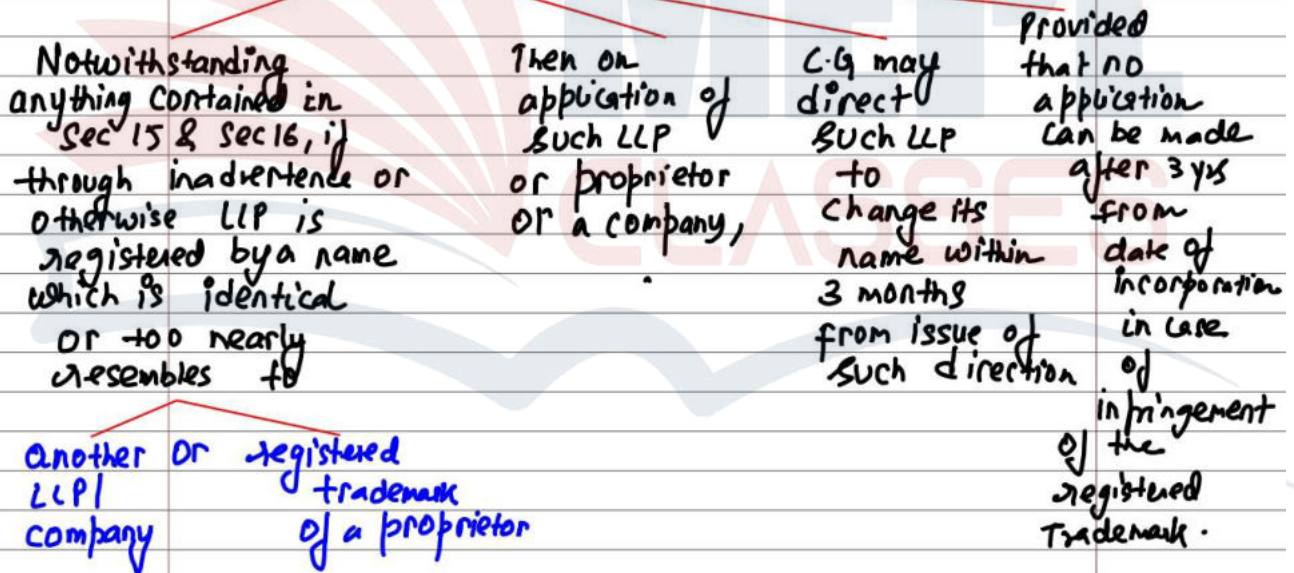 Notwithstanding
anything contained in
Sec 15 & Sec 16, if
through inadvertence or
otherwise LLP is
registered by a name
which is identical
or too nearly
resembles to
another or registered
LLP/ trademark
company of a proprietor
Then on
application of
such LLP
or proprietor
or a company,
C.G may
direct
such LLP
to
change its
name within
3 months
from issue of
such direction
Provided
that no
application
can be made
after 3 yrs
from
date of
incorporation
in case
of
infringement
of the
registered
Trademark.
CLASSES